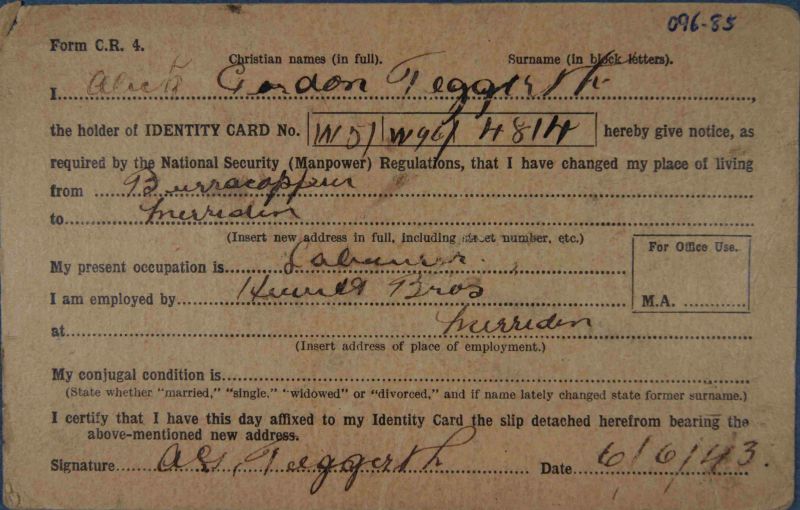 096-85
Form C.R. 4.
Christian names (in full). Surname (in block letters).
I Gordon Teggerth,
the holder of IDENTITY CARD No. W51 W96/ 4814 hereby give notice, as
required by the National Security (Manpower) Regulations, that I have changed my place of living
from Burracoppin
to Merredin
(Insert new address in full, including street number, etc.)
For Office Use.
My present occupation is Labourer.
I am employed by Bros
M.A.
at Merredin
(Insert address of place of employment.)
My conjugal condition is
(State whether "married," "single," "widowed" or "divorced," and if name lately changed state former surname.)
I certify that I have this day affixed to my Identity Card the slip detached herefrom bearing the
above-mentioned new address.
Signature AG. Teggerth Date 6/6/43.